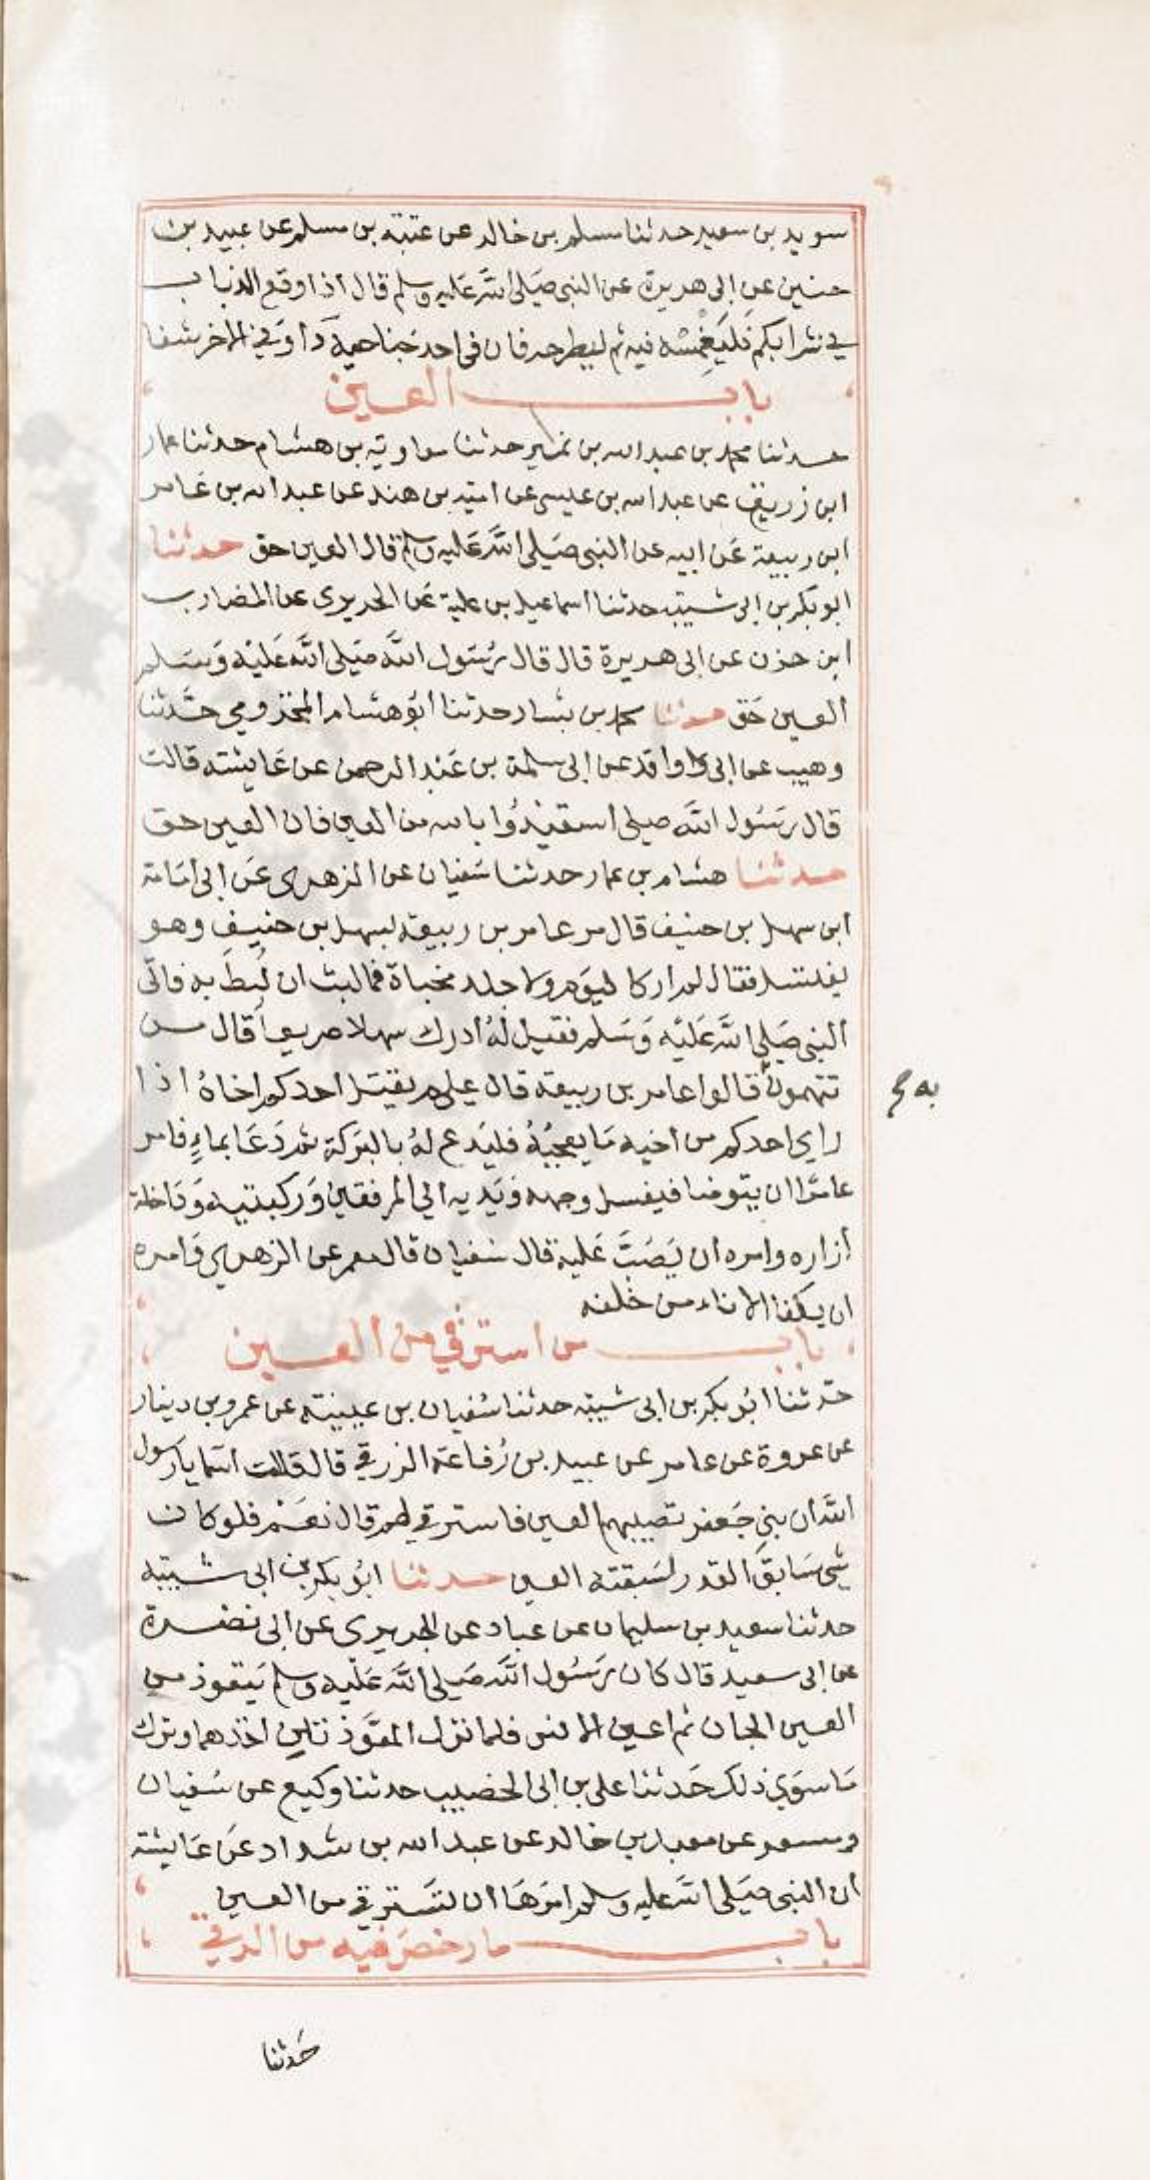 سويد بن سعيد حدثنا مسلم بن خالد عن عتبة بن مسلم عن عبيد بن
حنين عن ابى هريرة عن النبى صَلى اللَّه عَليه وسلم قال اذا وقع الذباب
في شرابكم فليَغمِسْه فيه ثم ليطرحه فان فى احد جَناحيهِ دَاء وَفي الاخر شفا
باب العين
حدثنا محمد بن عبد الله بن نمير حدثنا معاوية بن هشام حدثنا عمار
ابن زريق عن عبد الله بن عيسى عن امية بن هند عن عبد الله بن عَامر
ابن ربيعة عَن ابيه عن النبى صَلى اللَّه عَليه وسلم قال العين حق حدثنا
ابو بكر بن ابى شيبة حدثنا اسماعيل بن علية عَن الجريرى عن المضارب
ابن حزن عن ابى هريرة قال قال رسُول اللَّه صَلى اللَّه عَليْه وَسَلم
العين حَق حدثنا محمد بن بشار حدثنا ابُو هشام المخزومي حَدثنا
وهيب عن ابى واقد عن ابى سلمة بن عَبْد الرحمن عن عَايشة قالت
قال رسُول اللَّه صلى استعِيذُوا بالله من العين فان العين حق
حدثنا هشام بن عمار حدثنا سُفيان عن الزهرى عَن ابى امَامة
ابن سهل بن حنيف قال مر عامر بن ربيعة لسهل بن حنيف وهو
يغلتسل فقال لم ار كا ليَوم ولا جلد مخباة فما لبث ان لُبطَ به فاتى
النبى صَلي اللَّه عَليْه وَسَلم فقيل لهُ ادرك سهلا صريعاً قال من
تتهمون قالوا عامر بن ربيعة قال علىم يقتل احدكم اخاهُ اذا
به ع
راى احدكم من اخيه مَا يعجبُهُ فليَدع لهُ بالبَركة ثم دَعَا بماءٍ فامر
عامرًا ان يتوضا فيغسل وجهه وَيَديه الي المرفقين وَركبتيه وَدَاخلة
ازاره وامره ان يَصُبَّ عَليه قال سُفيان قال معمر عن الزهرى وَامره
ان يكفا الاناء من خلفه
باب من استرقي من العين
حَدثنا ابُو بكر بن ابى شيبة حدثنا سُفيان بن عيينة عن عمرو بن دينار
عن عروة عن عامر عن عبيد بن رُفاعة الزرقي قال قالت اسما يا رسول
اللَّه ان بني جَعفر تصيبهم العين فاسترقي لهم قال نعَم فلو كان
شى سَابقَ القدر لسَبقته العين حدثنا ابُو بكر بن ابى شيبة
حدثنا سعيد بن سليمان عن عباد عن الجريرى عن ابى نضرة
عن ابى سعيد قال كان رَسُول اللَّه صَلي اللَّه عَليه وسلم يَتعوذ من
العين الجان ثم اعين الانس فلما نزلت المعَوذتان اخذهما وترك
مَا سوَى ذلك حَدثنا على بن ابى الخصيب حدثنا وكيع عن سُفيان
ومسعر عن معبد بن خالد عن عبد الله بن شداد عَن عَايشة
ان النبى صَلى اللَّه عليه وسلم امَرهَا ان تَسترقي من العين
باب ما رخصَ فيه من الرقي
حَدثنا